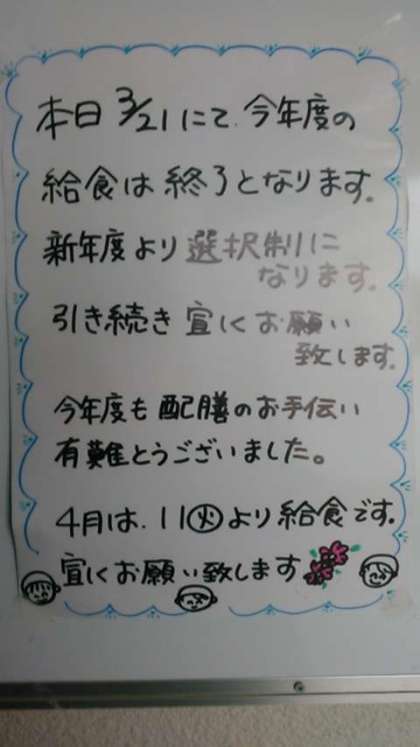 本日3/21にて.今年度の
給食は終了となります。
新年度より選択制に
なります。
引き続き宜しくお願い
致します。
今年度も配膳のお手伝い
有難とうございました。
4月は.11㊋より給食です.
宜しくお願い致します